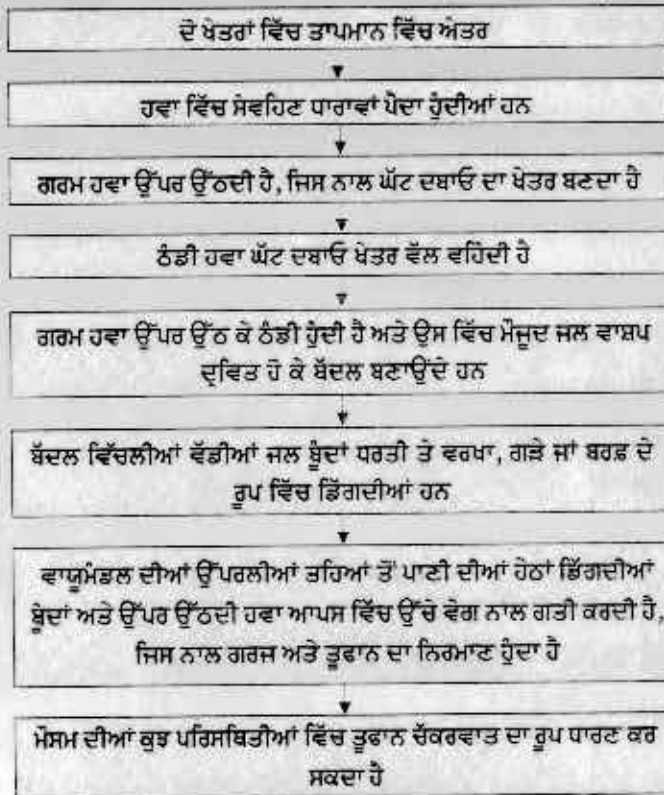 ਦੋ ਖੇਤਰਾਂ ਵਿੱਚ ਤਾਪਮਾਨ ਵਿੱਚ ਅੰਤਰ
ਹਵਾ ਵਿੱਚ ਸੰਵਹਿਣ ਧਾਰਾਵਾਂ ਪੈਦਾ ਹੁੰਦੀਆਂ ਹਨ
ਗਰਮ ਹਵਾ ਉੱਪਰ ਉੱਠਦੀ ਹੈ, ਜਿਸ ਨਾਲ ਘੱਟ ਦਬਾਓ ਦਾ ਖੇਤਰ ਬਣਦਾ ਹੈ
ਠੰਡੀ ਹਵਾ ਘੱਟ ਦਬਾਓ ਖੇਤਰ ਵੱਲ ਵਹਿੰਦੀ ਹੈ
ਗਰਮ ਹਵਾ ਉੱਪਰ ਉੱਠ ਕੇ ਠੰਡੀ ਹੁੰਦੀ ਹੈ ਅਤੇ ਉਸ ਵਿੱਚ ਮੌਜੂਦ ਜਲ ਵਾਸ਼ਪ
ਦ੍ਰਵਿਤ ਹੋ ਕੇ ਬੱਦਲ ਬਣਾਉਂਦੇ ਹਨ
ਬੱਦਲ ਵਿੱਚਲੀਆਂ ਵੱਡੀਆਂ ਜਲ ਬੂੰਦਾਂ ਧਰਤੀ ਤੇ ਵਰਖਾ, ਗੜੇ ਜਾਂ ਬਰਫ਼ ਦੇ
ਰੂਪ ਵਿੱਚ ਡਿੱਗਦੀਆਂ ਹਨ
ਵਾਯੂਮੰਡਲ ਦੀਆਂ ਉੱਪਰਲੀਆਂ ਤਹਿਆਂ ਤੋਂ ਪਾਣੀ ਦੀਆਂ ਹੇਠਾਂ ਡਿੱਗਦੀਆਂ
ਬੂੰਦਾਂ ਅਤੇ ਉੱਪਰ ਉੱਠਦੀ ਹਵਾ ਆਪਸ ਵਿੱਚ ਉੱਚੇ ਵੇਗ ਨਾਲ ਗਤੀ ਕਰਦੀ ਹੈ,
ਜਿਸ ਨਾਲ ਗਰਜ ਅਤੇ ਤੂਫਾਨ ਦਾ ਨਿਰਮਾਣ ਹੁੰਦਾ ਹੈ
ਮੌਸਮ ਦੀਆਂ ਕੁਝ ਪਰਿਸਥਿਤੀਆਂ ਵਿੱਚ ਤੂਫਾਨ ਚੱਕਰਵਾਤ ਦਾ ਰੂਪ ਧਾਰਣ ਕਰ
ਸਕਦਾ ਹੈ